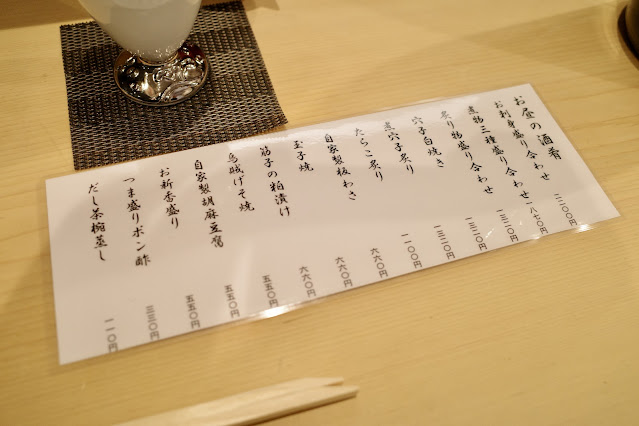 お昼の酒肴
お刺身盛り合わせ 二二〇〇円
煮物三種盛り合わせ 一八七〇円
炙り物盛り合わせ 一三二〇円
穴子白焼き 一三二〇円
煮穴子炙り 一三二〇円
たらこ炙り 一一〇〇円
自家製板わさ 六六〇円
玉子焼 六六〇円
筋子の粕漬け 六六〇円
烏賊げそ焼 五五〇円
自家製胡麻豆腐 五五〇円
お新香盛り 五五〇円
つま盛りポン酢 三三〇円
だし茶椀蒸し 一一〇円